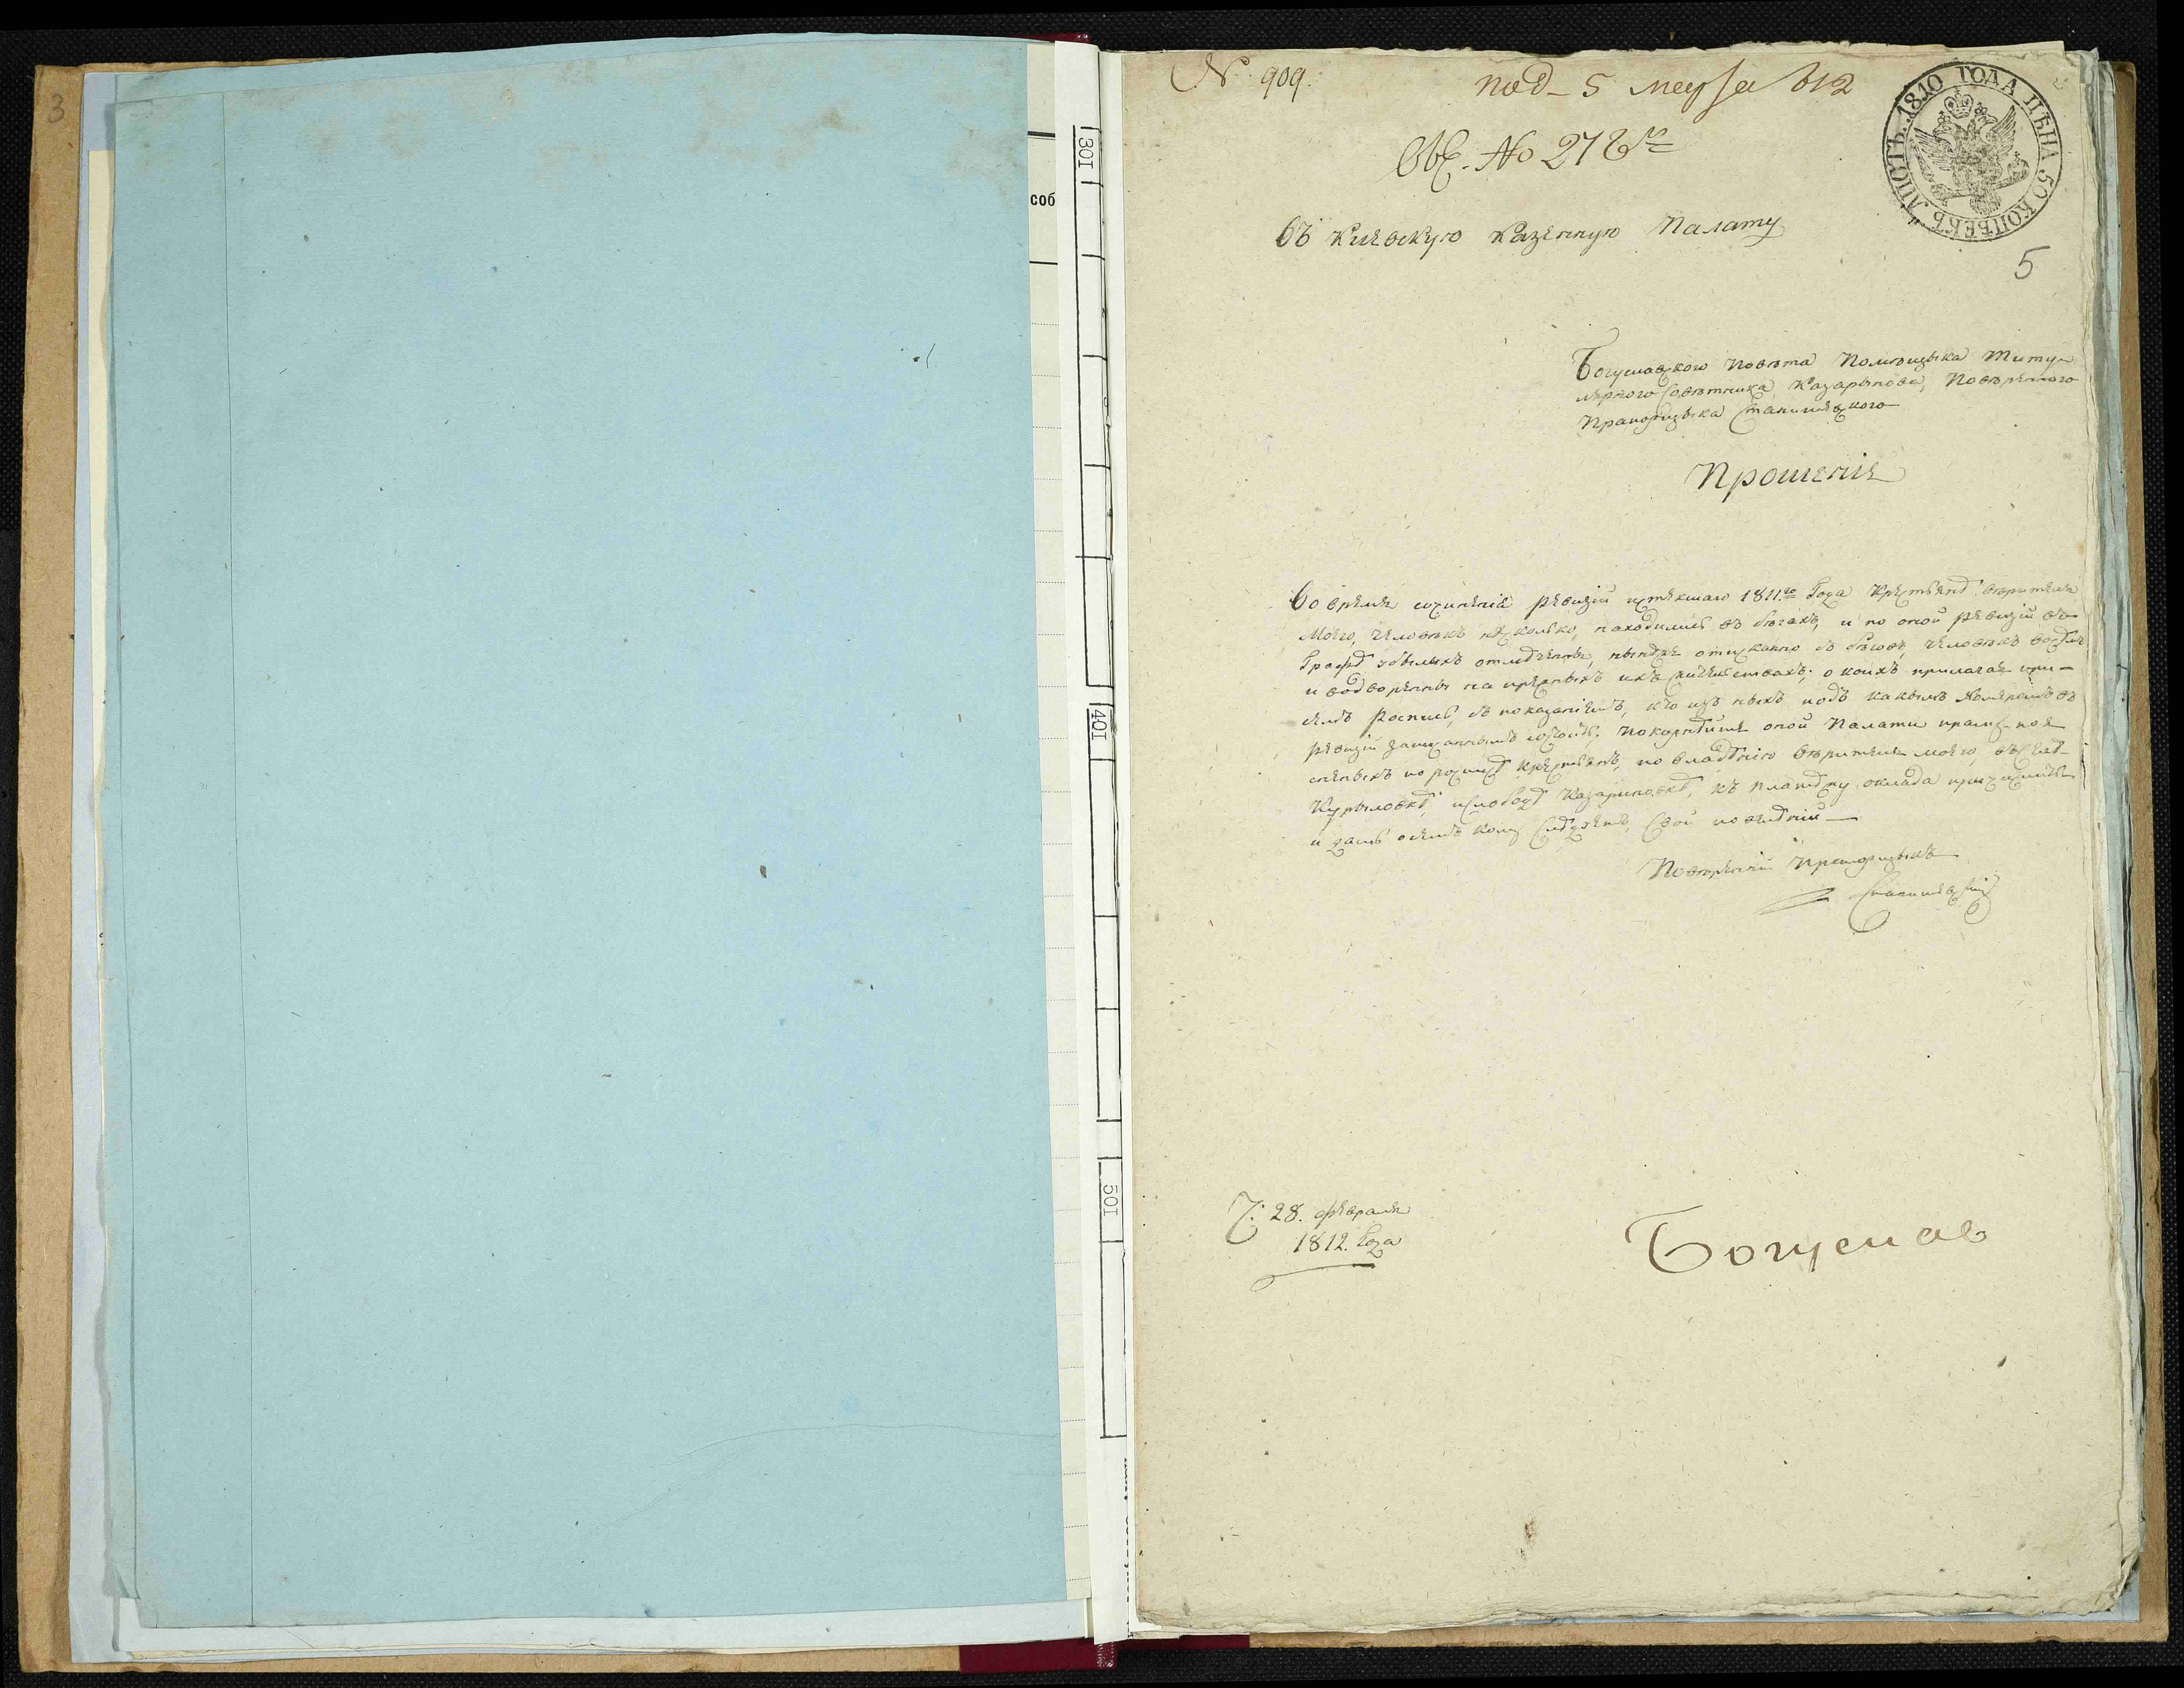 3
соб
301
401
501
№ 909.
под 5 марта 812
№ 27
ЛИСТЪ. 1810 ГОДА ЦѢНА 50 КОПѢЕКЪ
5
Въ Кіевскую Казенную Палату
Богуславского Повѣта Помѣщыка Титу-
лярного Совѣтника Казарынова, Повѣренного
Прапорщыка Станишевского
Прошеніе
Во время сочиненія Ревизіи истекшаго 1811го Года Крестьянъ вѣрителя
моего, человѣкъ несколько, находились въ бѣгахъ, и по оной Ревизіи въ
Графѣ збылыхъ отмѣчены, нынѣже отискано съ бѣговъ, человѣкъ
и водворенны на прежныхъ ихъ жительствахъ; о коихъ прилагая при-
семъ Роспись, съ показаніемъ, кто изъ ныхъ подъ какымъ Нумеромъ въ
Ревизіи записаннымъ состоитъ; Покорнѣйше оной Палаты
по росписѣ крестьянъ, по владѣнію вѣрителя моего, въ Селѣ
Курыловкѣ, и Слободѣ Казариновкѣ, къ платежу оклада причислить
и дать осемъ кому слѣдуетъ, свои повелѣнии
Повѣренный Прапорщыкъ
Станишевскій
Ч: 28. февраля
1812. Года
Богуслав